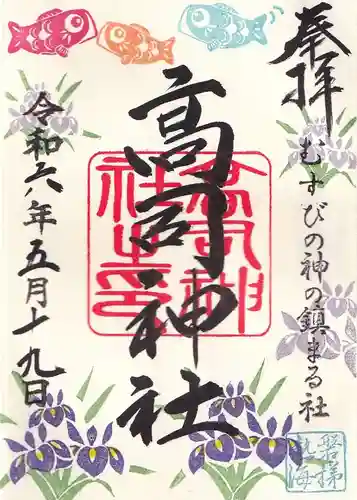 奉拝
むすびの神の鎮まる社
高司神社
令和六年五月十九日